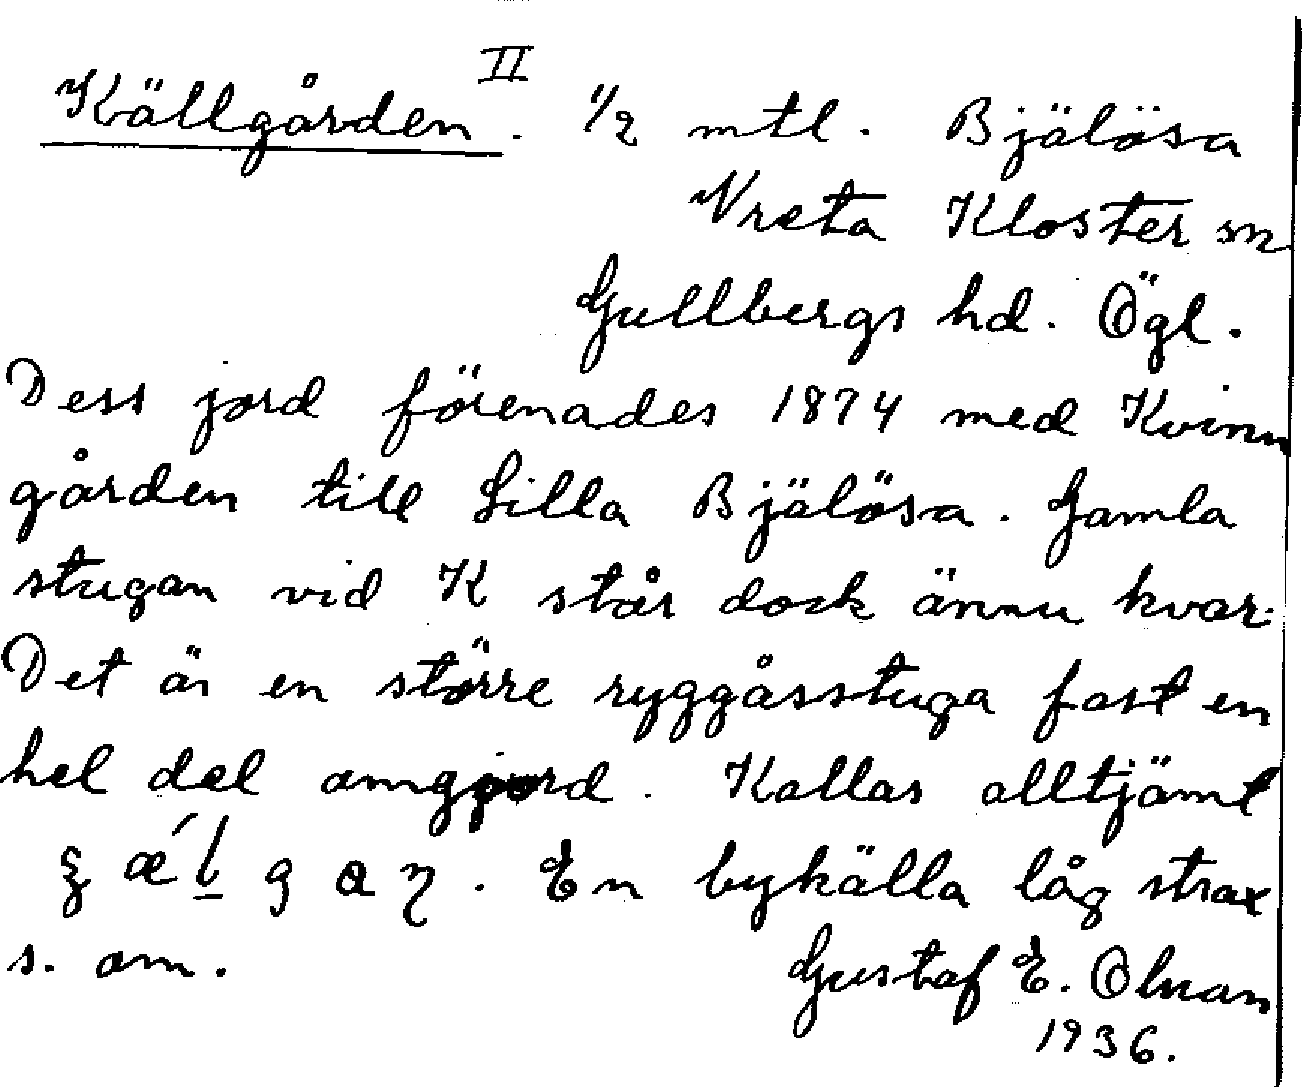 Källgården II. 1/2 mtl. Bjälösa
Vreta Kloster sn
Gullbergs hd. Ögl.
Dess jord förenades 1874 med Kvinn
gården till Lilla Bjälösa. Gamla
stugan vid K står dock ännu kvar.
Det är en större ryggåsstuga fast en
hel del omgjord. Kallas alltjämt
En bykälla låg strax
s. om. Gustaf E. Olman
1936.